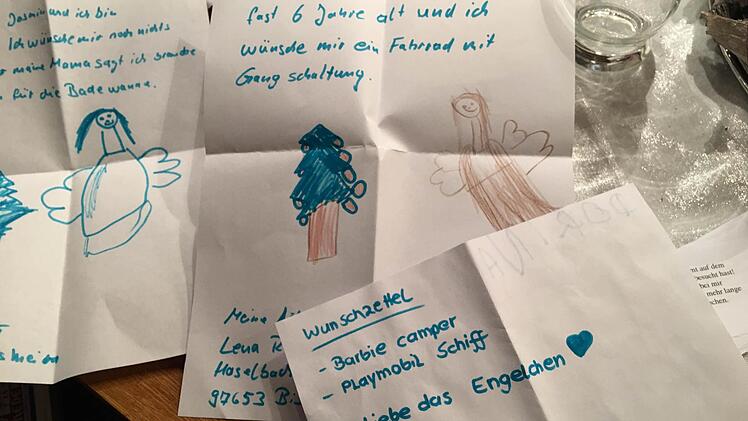 Jasmin und ich bin
Ich wünsche mir noch nichts
meine Mama sagt ich brauche
für die Badewanne.
fast 6 Jahre alt und ich
wünsche mir ein Fahrrad mit
Gangschaltung.
Meine
Lena
Haselbac
97653 Bi
DORINA
Wunschzettel
- Barbie camper
- Playmobil Schiff
liebe das Engelchen
nt auf dem
besucht hast!
bei mir
mehr lange
chen.